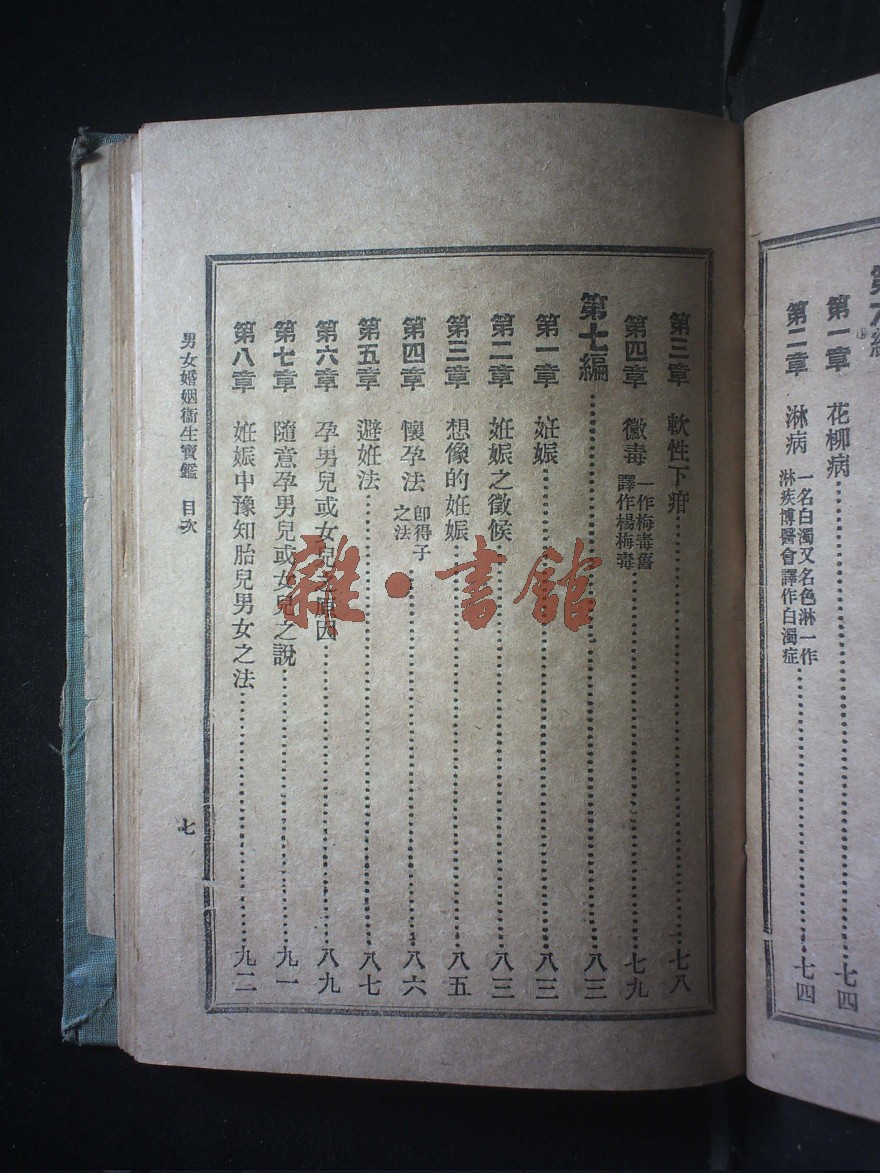 第六編
第一章 花柳病 七四
第二章 淋病 一名白濁又名色淋一作淋疾博醫會譯作白濁症 七四
第三章 軟性下疳 七八
第四章 黴毒 一作梅毒舊譯作楊梅毒 七九
第七編 八三
第一章 妊娠 八三
第二章 妊娠之徵候 八三
第三章 想像的妊娠 八五
第四章 懷孕法 卽得子之法 八六
第五章 避妊法 八七
第六章 孕男兒或女兒之原因 八九
第七章 隨意孕男兒或女兒之說 九一
第八章 妊娠中豫知胎兒男女之法 九二
男女婚姻衞生寶鑑 目次
七
雜·書館